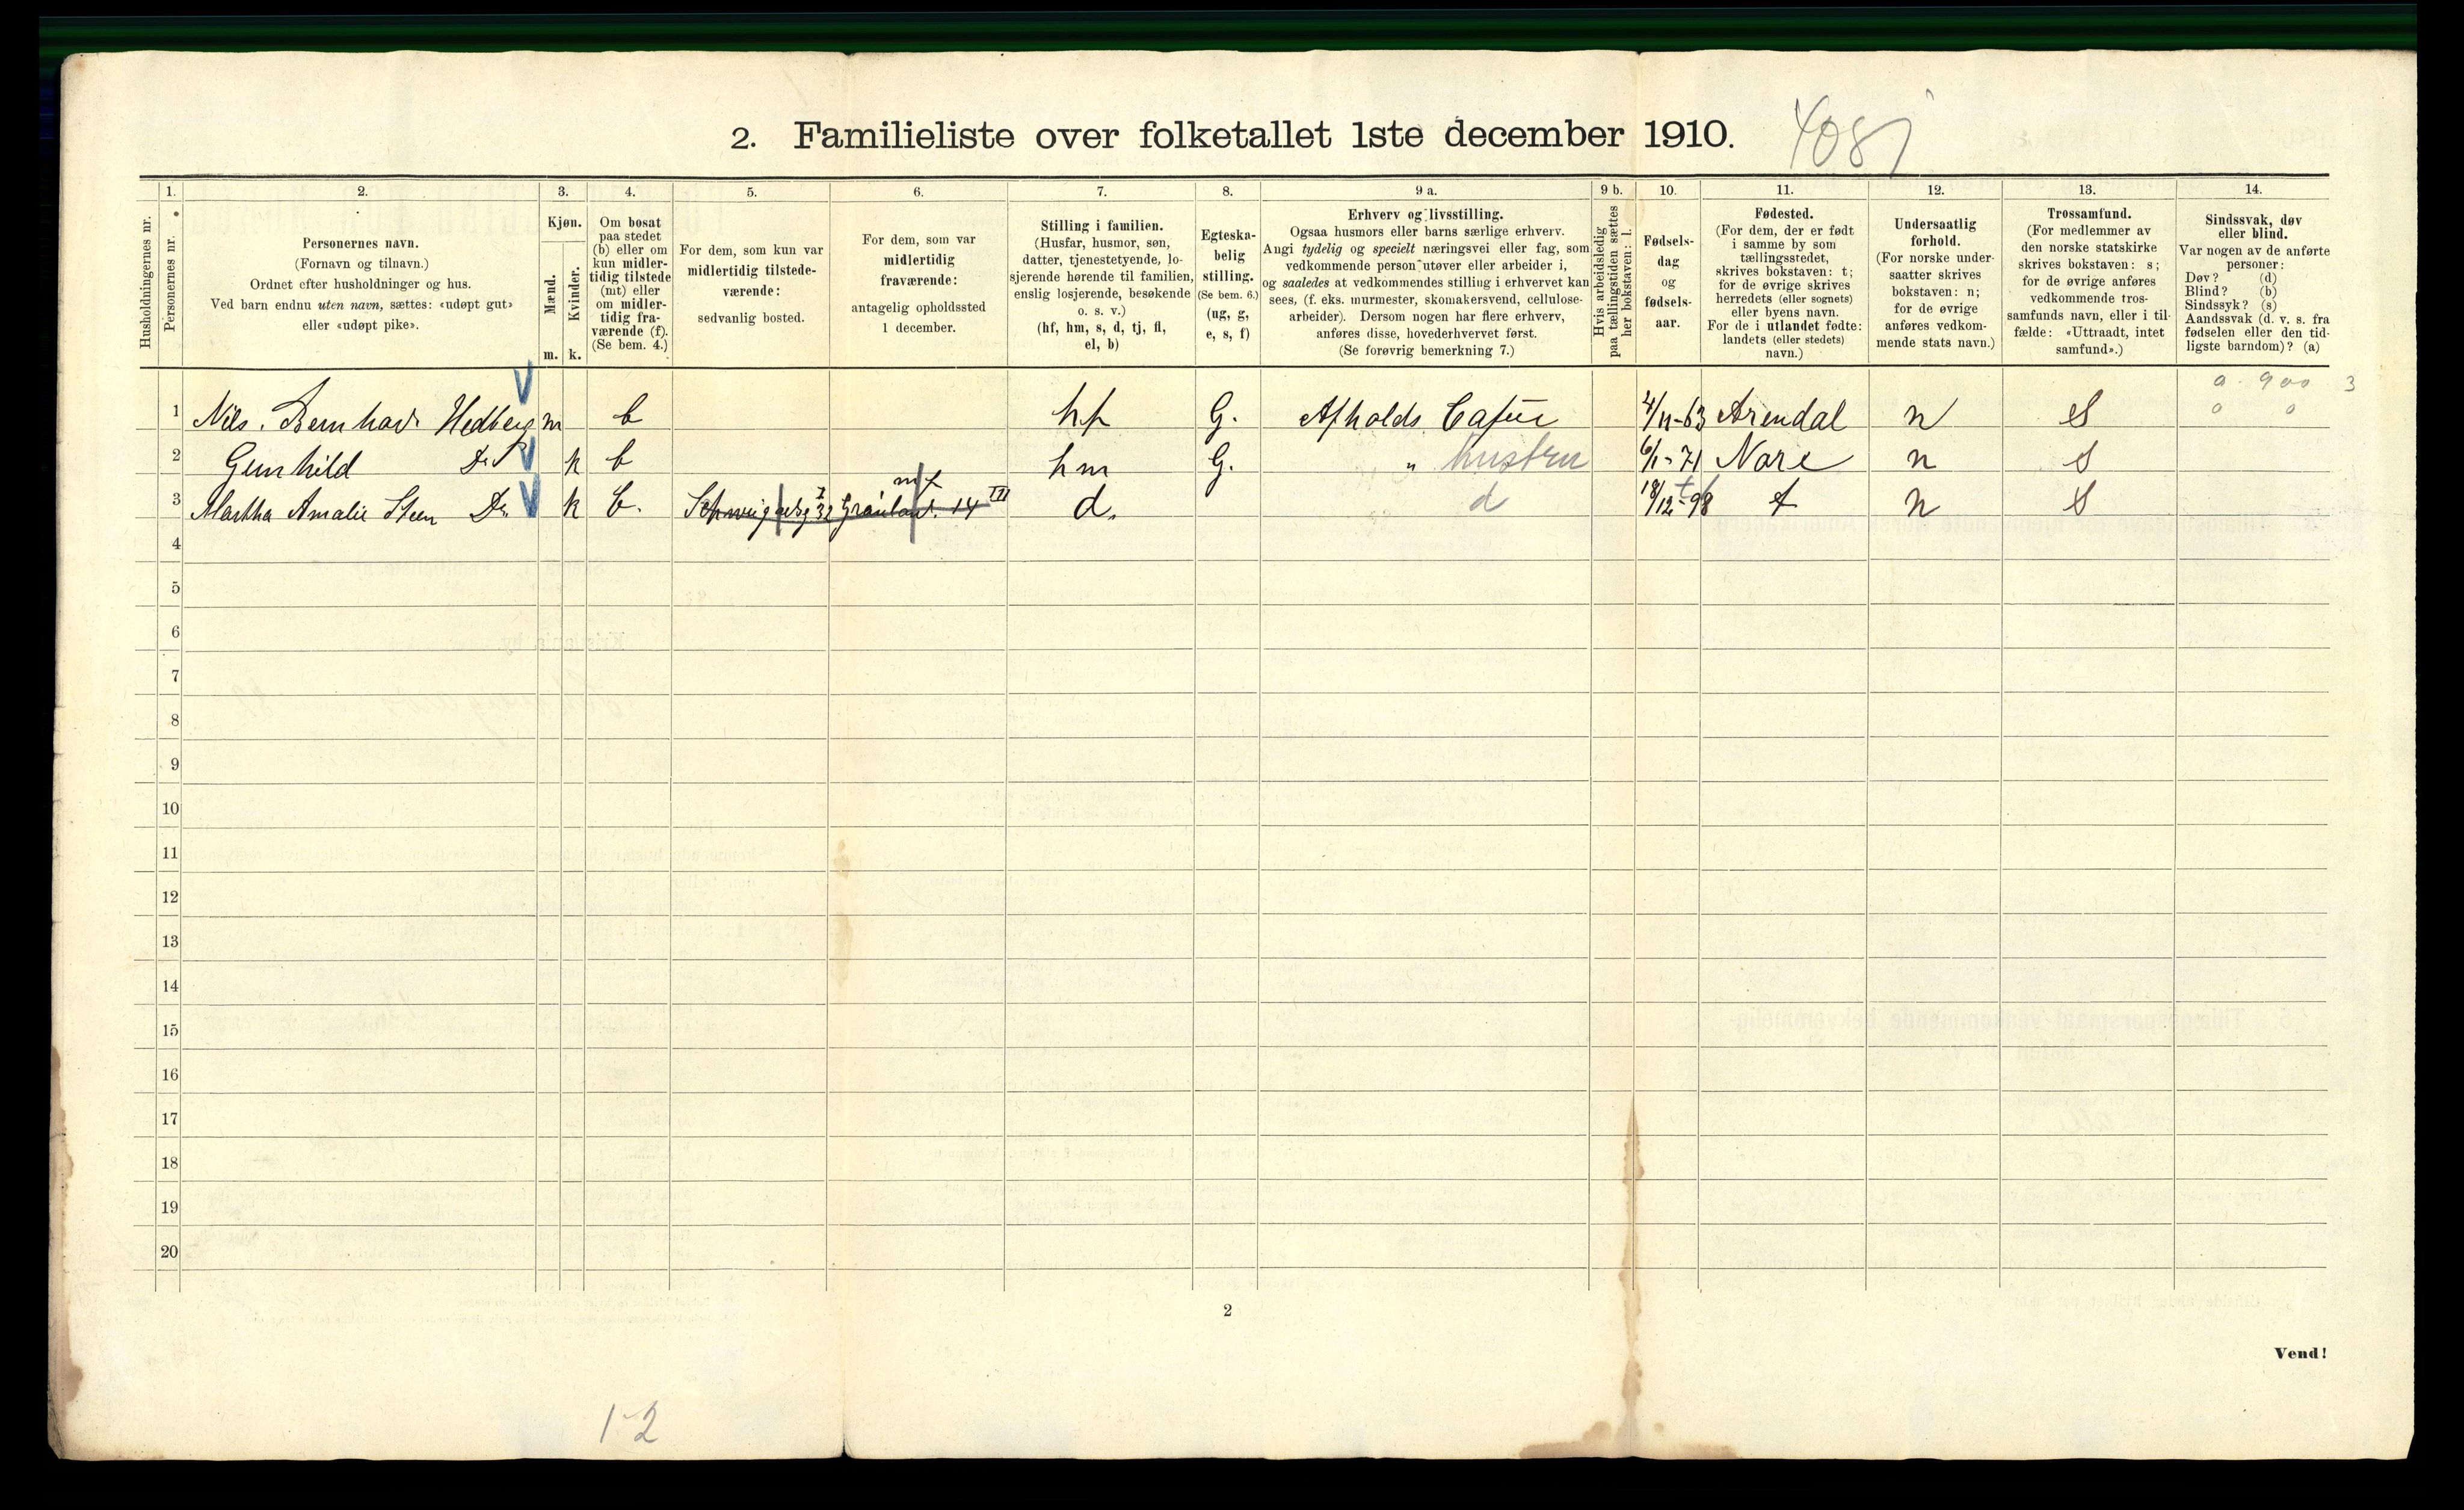 2. Familieliste over folketallet 1ste december 1910.
Husholdningernes nr.
1.
Personernes nr.
2.
Personernes navn.
(Fornavn og tilnavn.)
Ordnet efter husholdninger og hus.
Ved barn endnu uten navn, sættes: «udøpt gut»
eller «udøpt pike».
3.
Kjøn.
Mænd.
Kvinder.
m. k.
4.
Om bosat
paa stedet
(b) eller om
kun midler-
tidig tilstede
(mt) eller
om midler-
tidig fra-
værende (f).
(Se bem. 4.)
5.
For dem, som kun var
midlertidig tilstede-
værende:
sedvanlig bosted.
6.
For dem, som var
midlertidig
fraværende:
antagelig opholdssted
1 december.
7.
Stilling i familien.
(Husfar, husmor, søn,
datter, tjenestetyende, lo-
sjerende hørende til familien,
enslig losjerende, besøkende
o. s. v.)
(hf, hm, s, d, tj, fl,
el, b)
8.
Egteska-
belig
stilling.
(Se bem. 6.)
(ug, g,
e, s, f)
9 a.
Erhverv og livsstilling.
Ogsaa husmors eller barns særlige erhverv.
Angi tydelig og specielt næringsvei eller fag, som
vedkommende person utøver eller arbeider i,
og saaledes at vedkommendes stilling i erhvervet kan
sees, (f. eks. murmester, skomakersvend, cellulose-
arbeider). Dersom nogen har flere erhverv,
anføres disse, hovederhvervet først.
(Se forøvrig bemerkning 7.)
9 b.
Hvis arbeidsledig
paa tællingstiden sættes
her bokstaven: l.
10.
Fødsels-
dag
og
fødsels-
aar.
11.
Fødested.
(For dem, der er født
i samme by som
tællingsstedet,
skrives bokstaven: t;
for de øvrige skrives
herredets (eller sognets)
eller byens navn.
For de i utlandet fødte:
landets (eller stedets)
navn.)
12.
Undersaatlig
forhold.
(For norske under-
saatter skrives
bokstaven: n;
for de øvrige
anføres vedkom-
mende stats navn.)
13.
Trossamfund.
(For medlemmer av
den norske statskirke
skrives bokstaven: s;
for de øvrige anføres
vedkommende tros-
samfunds navn, eller i til-
fælde: «Uttraadt, intet
samfund».)
14.
Sindssvak, døv
eller blind.
Var nogen av de anførte
personer:
Døv? (d)
Blind? (b)
Sindssyk? (s)
Aandssvak (d. v. s. fra
fødselen eller den tid-
ligste barndom)? (a)
0 - 900 3
0 0
1 Nils. Bernhard Hedberg m b hf G. Afholds Cafue 4/11-63 Arendal n S
2 Gunhild Do k b hm G. " hustru 6/1-71 Nore n S
mt
3 Martha Amalie Steen Do k b. Schweigaardsg 32 Grønland. 14 III d. d 18/12-98 t n S
4
5
6
7
8
9
10
11
12
13
14
15
16
17
18
19
20
2
Vend!
1-2